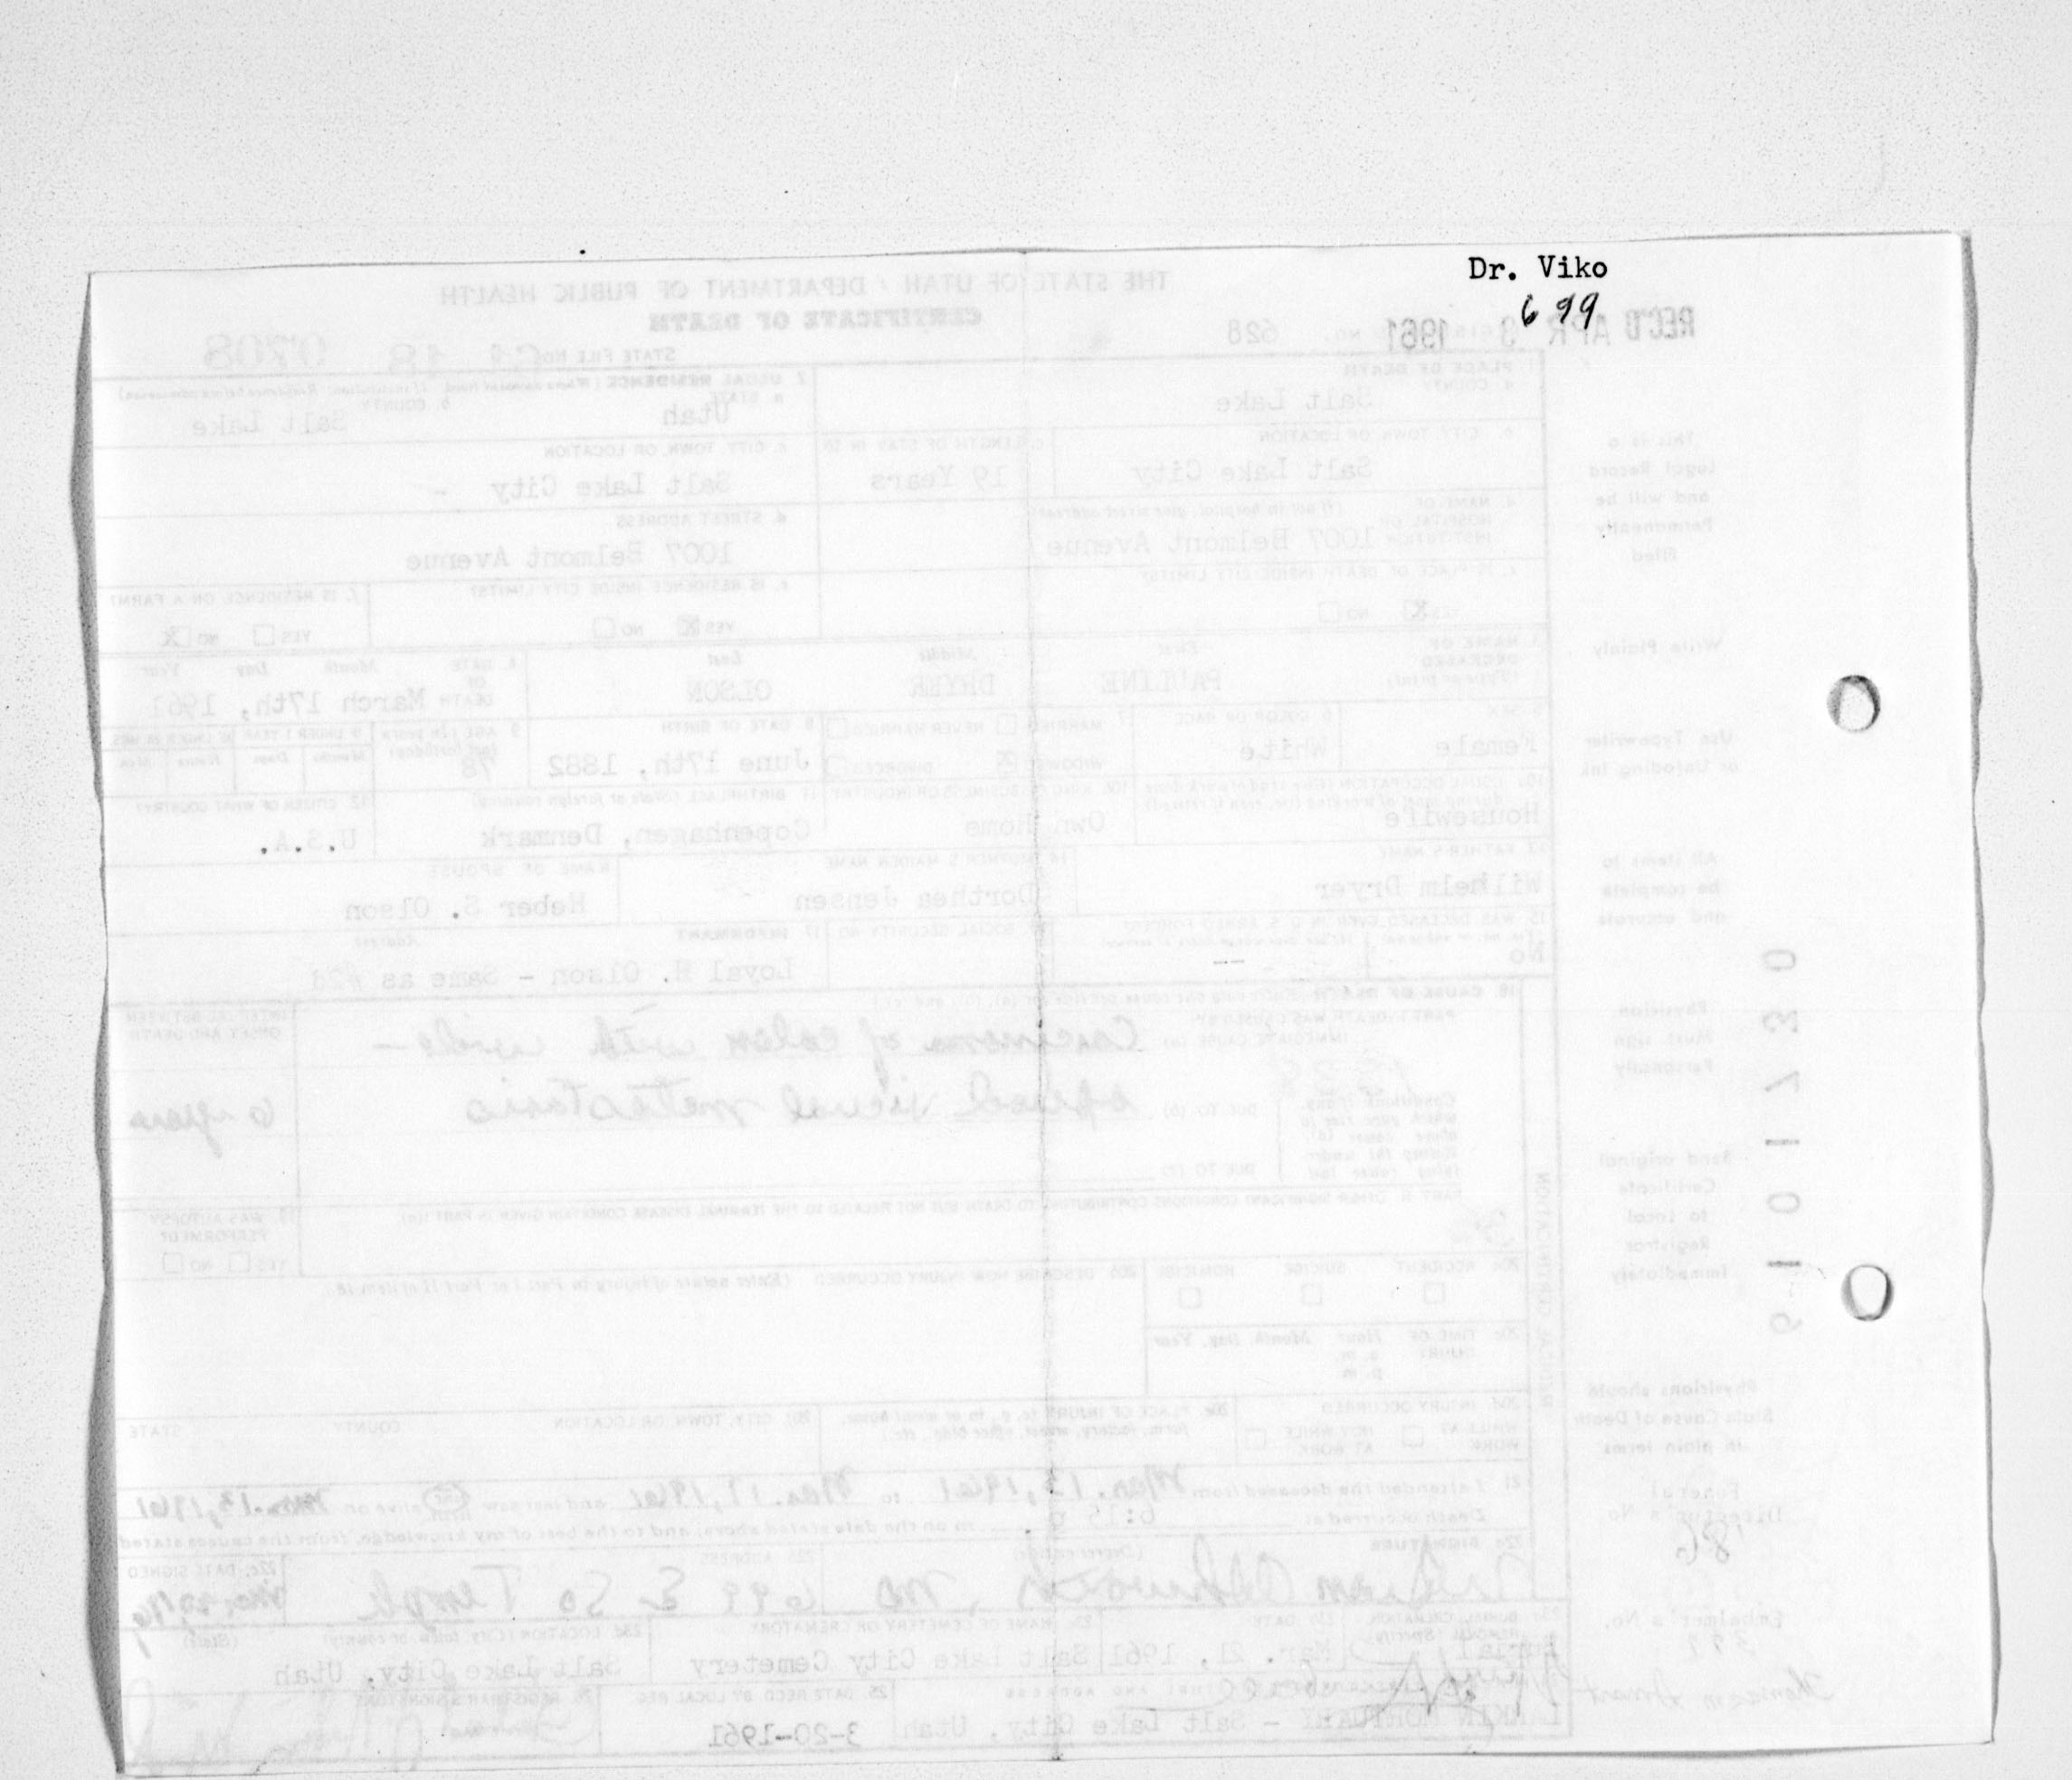 Dr. Viko
699
REC'D APR 3 1961
628
THE STATE OF UTAH / DEPARTMENT OF PUBLIC HEALTH
CERTIFICATE OF DEATH
STATE FILE No. 61 18 0708
1. PLACE OF DEATH
a. COUNTY
Salt Lake
2. USUAL RESIDENCE (Where deceased lived. If institution: Residence before admission)
a. STATE
Utah
b. COUNTY
Salt Lake
b. CITY, TOWN, OR LOCATION
Salt Lake City
c. LENGTH OF STAY IN 1b
19 Years
c. CITY, TOWN, OR LOCATION
Salt Lake City -
d. NAME OF HOSPITAL OR INSTITUTION (If not in hospital, give street address)
1007 Belmont Avenue
d. STREET ADDRESS
1007 Belmont Avenue
e. IS PLACE OF DEATH INSIDE CITY LIMITS?
YES X NO
e. IS RESIDENCE INSIDE CITY LIMITS?
YES X NO
f. IS RESIDENCE ON A FARM?
YES NO X
3. NAME OF DECEASED (Type or print)
First Middle Last
PAULINE DRYER OLSON
4. DATE OF DEATH Month Day Year
March 17th, 1961
5. SEX
Female
6. COLOR OR RACE
White
7. MARRIED NEVER MARRIED
WIDOWED X DIVORCED
8. DATE OF BIRTH
June 17th, 1882
9. AGE (In years last birthday)
78
IF UNDER 1 YEAR IF UNDER 24 HRS.
Months Days Hours Min.
10a. USUAL OCCUPATION (Give kind of work done during most of working life, even if retired)
Housewife
10b. KIND OF BUSINESS OR INDUSTRY
Own home
11. BIRTHPLACE (State or foreign country)
Copenhagen, Denmark
12. CITIZEN OF WHAT COUNTRY?
U.S.A.
13. FATHER'S NAME
Wilhelm Dryer
14. MOTHER'S MAIDEN NAME
Dorthea Jensen
NAME OF SPOUSE
Heber S. Olson
15. WAS DECEASED EVER IN U. S. ARMED FORCES?
No --
16. SOCIAL SECURITY NO.
17. INFORMANT Address
Loyal H. Olson - Same as #2d
18. CAUSE OF DEATH (Enter only one cause per line for (a), (b), and (c).)
PART I. DEATH WAS CAUSED BY:
IMMEDIATE CAUSE (a) Carcinoma of colon with wide-
spread visceral metastasis
INTERVAL BETWEEN ONSET AND DEATH
6 years
Conditions, if any, which gave rise to above cause (a), stating the underlying cause last.
DUE TO (b)
DUE TO (c)
PART II. OTHER SIGNIFICANT CONDITIONS CONTRIBUTING TO DEATH BUT NOT RELATED TO THE TERMINAL DISEASE CONDITION GIVEN IN PART I(a)
19. WAS AUTOPSY PERFORMED?
YES NO
20a. ACCIDENT SUICIDE HOMICIDE
20b. DESCRIBE HOW INJURY OCCURRED. (Enter nature of injury in Part I or Part II of item 18.)
20c. TIME OF INJURY Hour Month, Day, Year
a. m.
p. m.
20d. INJURY OCCURRED
WHILE AT WORK NOT WHILE AT WORK
20e. PLACE OF INJURY (e. g., in or about home, farm, factory, street, office bldg., etc.)
20f. CITY, TOWN, OR LOCATION COUNTY STATE
21. I attended the deceased from Mar. 13, 1961 to Mar. 17, 1961 and last saw her alive on Mar. 13, 1961
Death occurred at 6:15 P m on the date stated above; and to the best of my knowledge, from the causes stated.
22a. SIGNATURE (Degree or title)
22b. ADDRESS
699 E So Temple
22c. DATE SIGNED
23a. BURIAL, CREMATION, REMOVAL (Specify)
Burial
23b. DATE
Mar. 21, 1961
23c. NAME OF CEMETERY OR CREMATORY
Salt Lake City Cemetery
23d. LOCATION (City, town, or county) (State)
Salt Lake City, Utah
LARKIN MORTUARY - Salt Lake City, Utah
25. DATE RECD BY LOCAL REG.
3-20-1961
26. REGISTRAR'S SIGNATURE
MEDICAL CERTIFICATION
This is a
Legal Record
and will be
Permanently
filed
Write Plainly
Use Typewriter
or Unfading Ink
All items to
be complete
and accurate
Physician
Must sign
Personally
Send original
Certificate
to Local
Registrar
Immediately
Physicians should
State Cause of Death
in plain terms
Funeral
Director's No.
186
Embalmer's No.
397
6101730